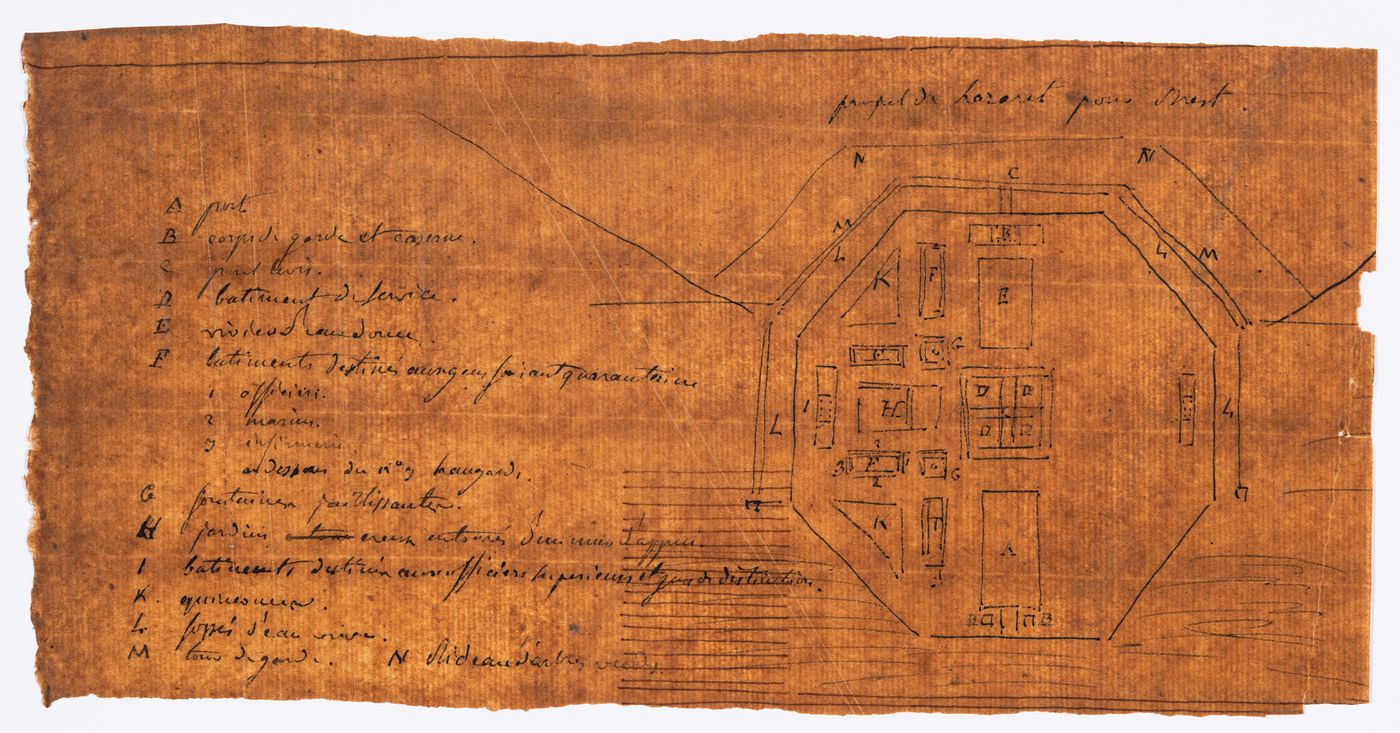 projet de lazaret pour Brest.
A port
B corps de garde et caserne.
C pont levis.
D batiment de service.
E vivier d'eau douce
F batiments destinés aux gens faisant quarantaine
1 officiers.
2 marins.
3 infirmerie
au dessous du N° 3 hangards.
G fontaines jaillissantes.
H jardins creux entourés d'un mur d'appui.
I batiments destinés aux officiers superieurs et gens de distinction.
K. quinconces.
L fossés d'eau vive.
M tour de garde. N Rideau d'arbres verds.
N N
C
M L L M
B
K F E
F G G
I H D D I
D D
L L
3 F 1 G G
2 2
K F A
B D D B